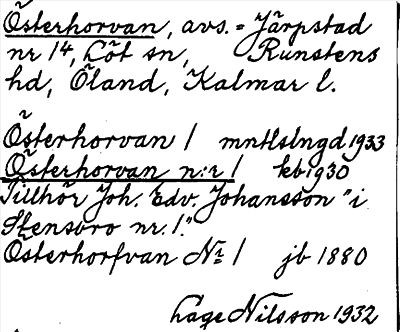 Österhorvan, avs. = Järpstad
nr 14, Löt sn, Runstens
hd, Öland, Kalmar l.
Österhorvan 1 mntlslngd 1933
Österhorvan n:r 1 kb 1930
Tillhör Joh. Edv. Johansson "i
Stensbro nr. 1."
Österhorfvan No 1 jb 1880
Lage Nilsson 1932